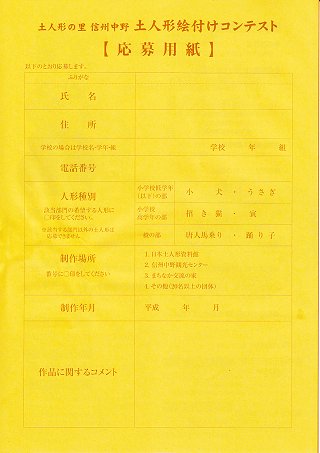 土人形の里 信州中野 土人形絵付けコンテスト
【 応 募 用 紙 】
以下のとおり応募します。
ふりがな
氏 名
住 所
学校の場合は学校名・学年・組
学校 年 組
電話番号
人形種別
該当部門の希望する人形に
○印をしてください。
※該当する部門以外の土人形は
応募できません。
小学校低学年
(以下)の部
小 犬 ・ うさぎ
小学校
高学年の部
招 き 猫 ・ 寅
一般の部
唐人馬乗り ・ 踊り子
制作場所
番号に○印をしてください
1. 日本土人形資料館
2. 信州中野観光センター
3. まちなか交流の家
4. その他(20名以上の団体)
制作年月
平成 年 月
作品に関するコメント